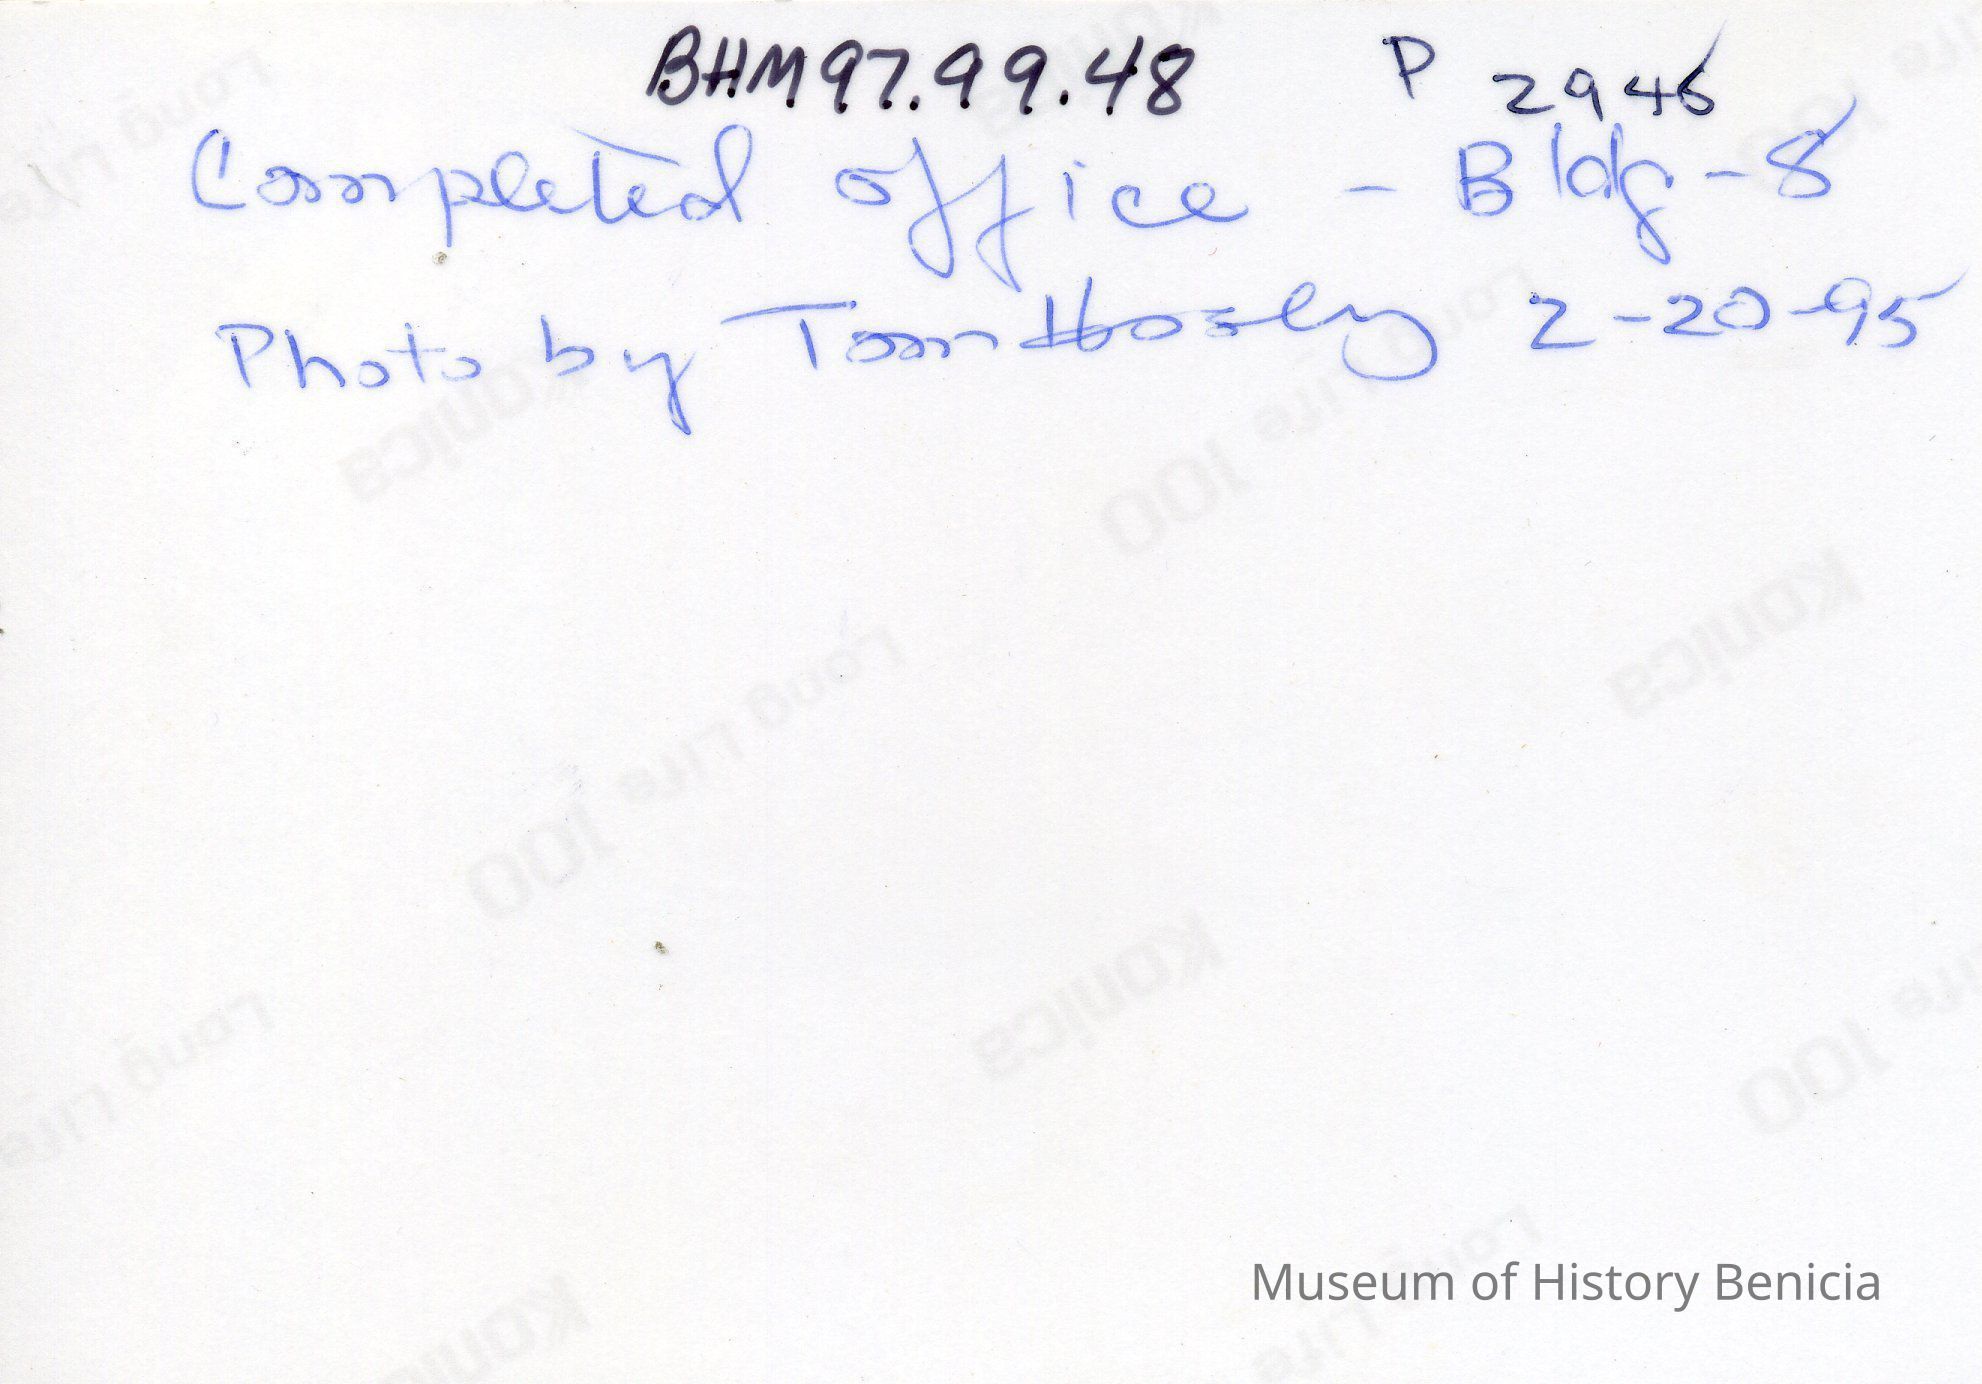 BHM97.99.48 P 2946
Completed office - Bldg-8
Photo by Tom 2-20-95
Konica
Long Life 100
Museum of History Benicia